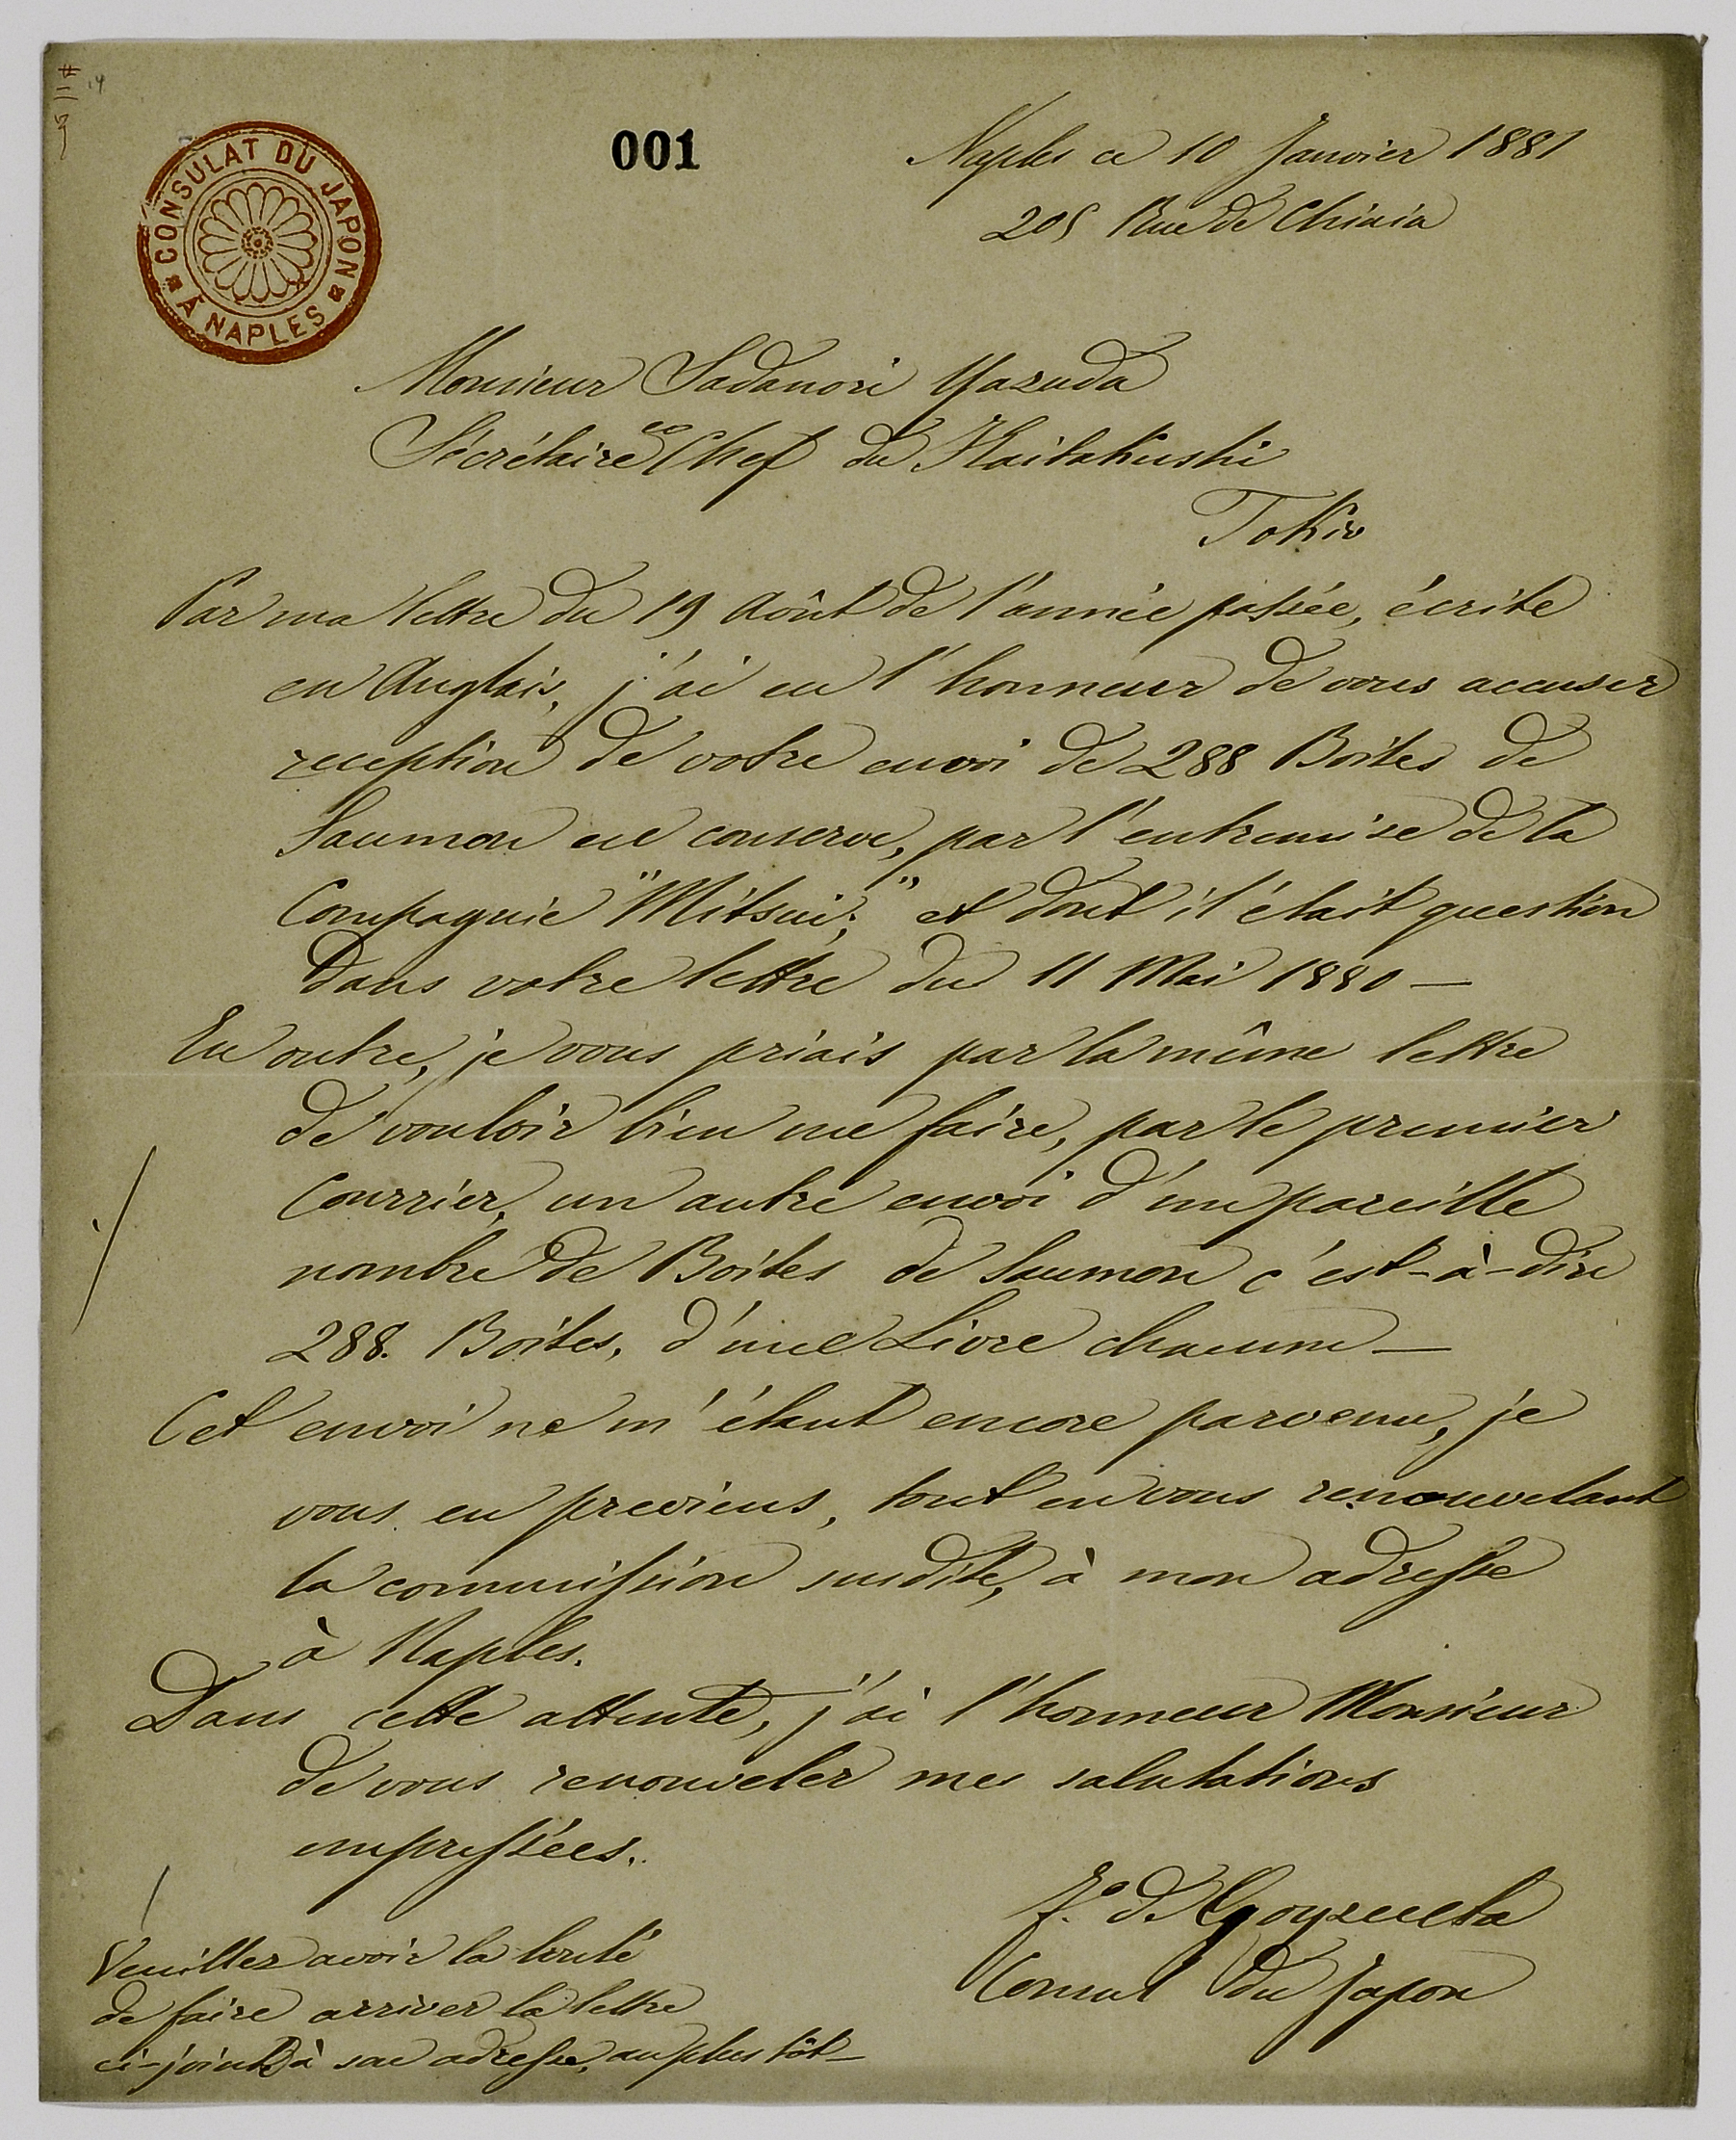 001
CONSULAT DU JAPON
À NAPLES
Naples ce 10 Janvier 1881
205 Rue de Chiaia
Monsieur Sadanori Yazuda
Sécrétaire en Chef du Kaitakushi
Tokio
Par ma lettre du 19 Août de l'année passée, écrite
en Anglais, j'ai eu l'honneur de vous accuser
reception de votre envoi de 288 Boites de
Saumon en conserve, par l'entremise de la
Compagnie "Mitsui;" et dont il était question
dans votre lettre du 11 Mai 1880 —
En outre, je vous priais par la même lettre
de vouloir bien me faire, par le premier
Courrier, un autre envoi d'un pareille
nombre de Boites de Saumon c'est-à-dire
288. Boites, d'une Livre chacune —
Cet envoi ne m'étant encore parvenu, je
vous en previens, tout en vous renouvelant
la commission susdite, à mon adresse
à Naples.
Dans cette attente, j'ai l'honneur Monsieur
de vous renouveler mes salutations
empressées.
Consul du Japon
Veuillez avoir la bonté
de faire arriver la lettre
ci-jointe à son adresse, au plus tôt —